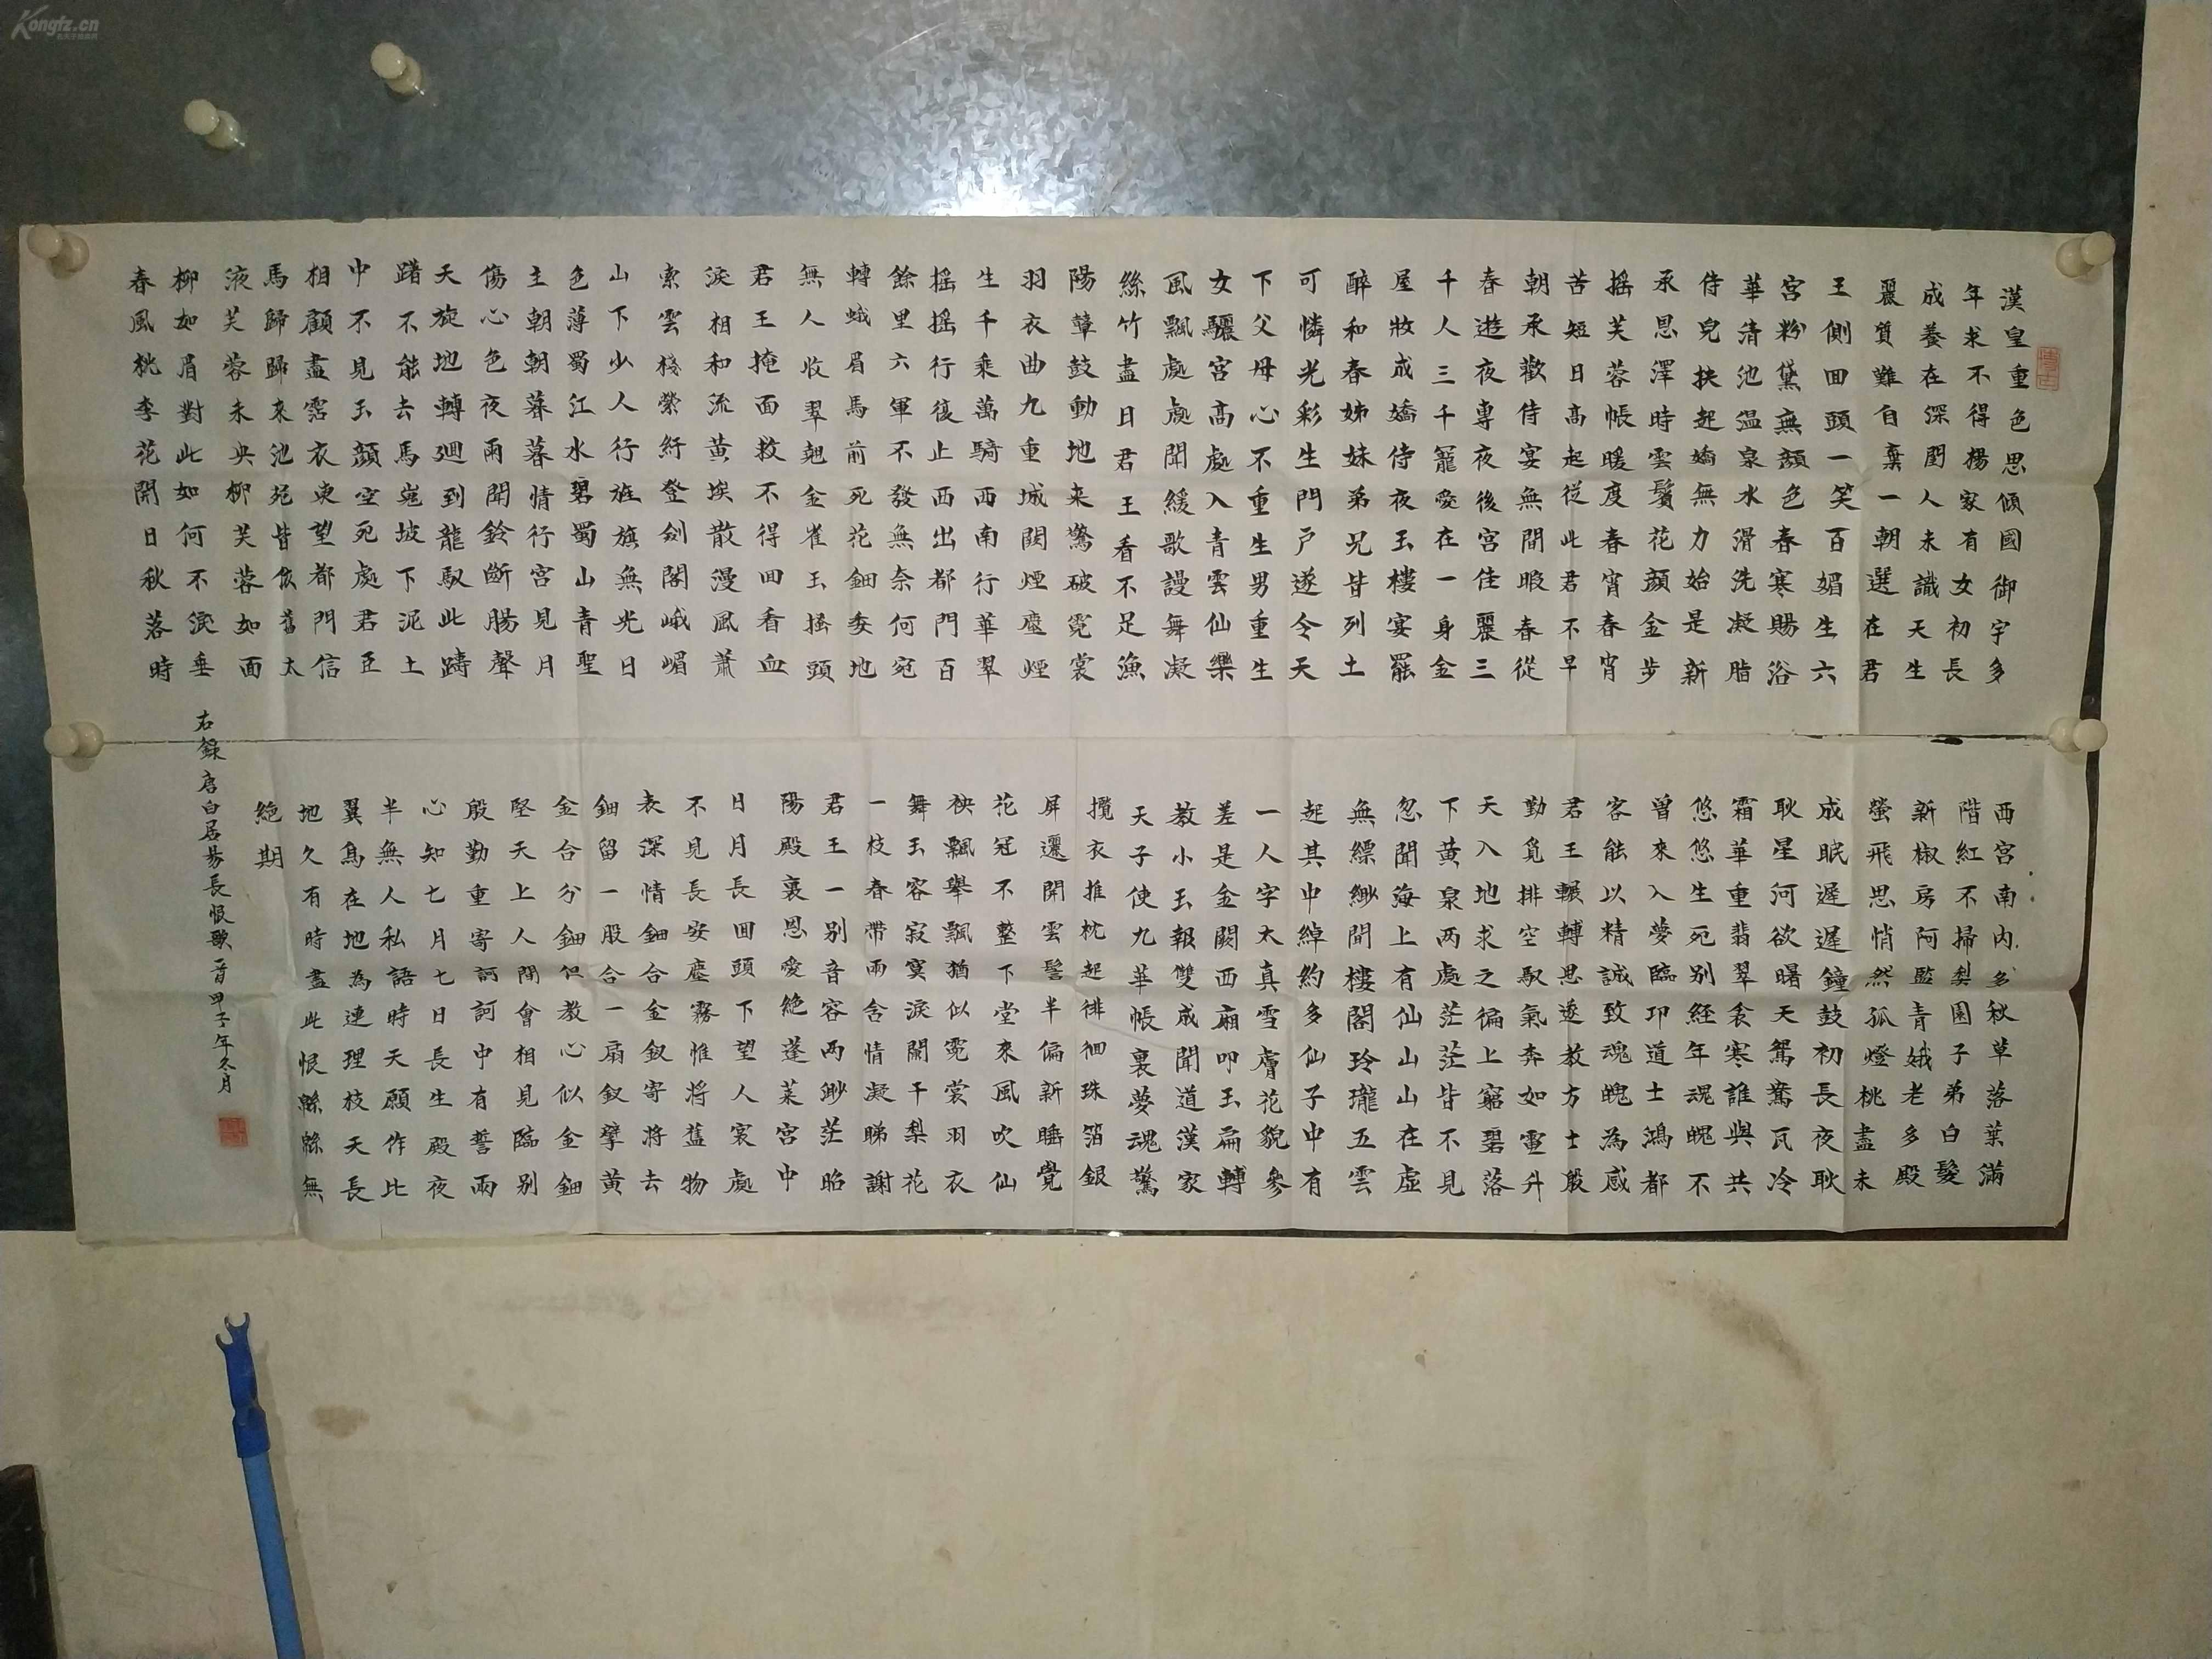 漢皇重色思傾國御宇多
年求不得楊家有女初長
成養在深閨人未識天生
麗質難自棄一朝選在君
王側回頭一笑百媚生六
宮粉黛無顏色春寒賜浴
華清池温泉水滑洗凝脂
侍兒扶起嬌無力始是新
承恩澤時雲鬢花顏金步
摇芙蓉帳暖度春宵春宵
苦短日高起從此君不早
朝承歡侍宴無間暇春從
春遊夜專夜後宮佳麗三
千人三千寵愛在一身金
屋妝成嬌侍夜玉樓宴罷
醉和春姊妹弟兄皆列土
可憐光彩生門戶遂令天
下父母心不重生男重生
女驪宮高處入青雲仙樂
風飄處處聞緩歌謾舞凝
絲竹盡日君王看不足漁
陽鼙鼓動地来驚破霓裳
羽衣曲九重城闕煙塵煙
生千乘萬騎西南行華翠
摇摇行復止西出都門百
餘里六軍不發無奈何宛
轉蛾眉馬前死花鈿委地
無人收翠翹金雀玉搔頭
君王掩面救不得回看血
淚相和流黃埃散漫風蕭
索雲棧縈紆登劍閣峨嵋
山下少人行旌旗無光日
色薄蜀江水碧蜀山青聖
主朝朝暮暮情行宮見月
傷心色夜雨聞鈴斷腸聲
天旋地轉迴到龍馭此躊
躇不能去馬嵬坡下泥土
中不見玉顏空死處君臣
相顧盡霑衣東望都門信
馬歸歸來池苑皆依舊太
液芙蓉未央柳芙蓉如面
柳如眉對此如何不淚垂
春風桃李花開日秋落時
西宮南内多秋草落葉滿
階紅不掃梨園子弟白髮
新椒房阿監青娥老多殿
螢飛思悄然孤燈桃盡未
成眠遲遲鐘鼓初長夜耿
耿星河欲曙天鴛鴦瓦冷
霜華重翡翠衾寒誰與共
悠悠生死别經年魂魄不
曾來入夢臨卭道士鴻都
客能以精誠致魂魄為感
君王輾轉思遂教方士殷
勤覓排空馭氣奔如電升
天入地求之徧上窮碧落
下黃泉兩處茫茫皆不見
忽聞海上有仙山山在虛
無縹緲間樓閣玲瓏五雲
起其中綽約多仙子中有
一人字太真雪膚花貌參
差是金闕西廂叩玉扃轉
教小玉報雙成聞道漢家
天子使九華帳裏夢魂驚
攬衣推枕起徘徊珠箔銀
屏邐開雲髻半偏新睡覺
花冠不整下堂來風吹仙
袂飄舉飄猶似霓裳羽衣
舞玉容寂寞淚闌干梨花
一枝春帶雨含情凝睇謝
君王一别音容兩渺茫昭
陽殿裏恩愛絶蓬萊宮中
日月長回頭下望人寰處
不見長安塵霧惟將舊物
表深情鈿合金釵寄將去
鈿留一股合一扇釵擘黃
金合分鈿但教心似金鈿
堅天上人間會相見臨别
殷勤重寄詞詞中有誓兩
心知七月七日長生殿夜
半無人私語時天願作比
翼鳥在地為連理枝天長
地久有時盡此恨緜緜無
絶期
右錄唐白居易長恨歌一首甲子年冬月
Kongfz.cn